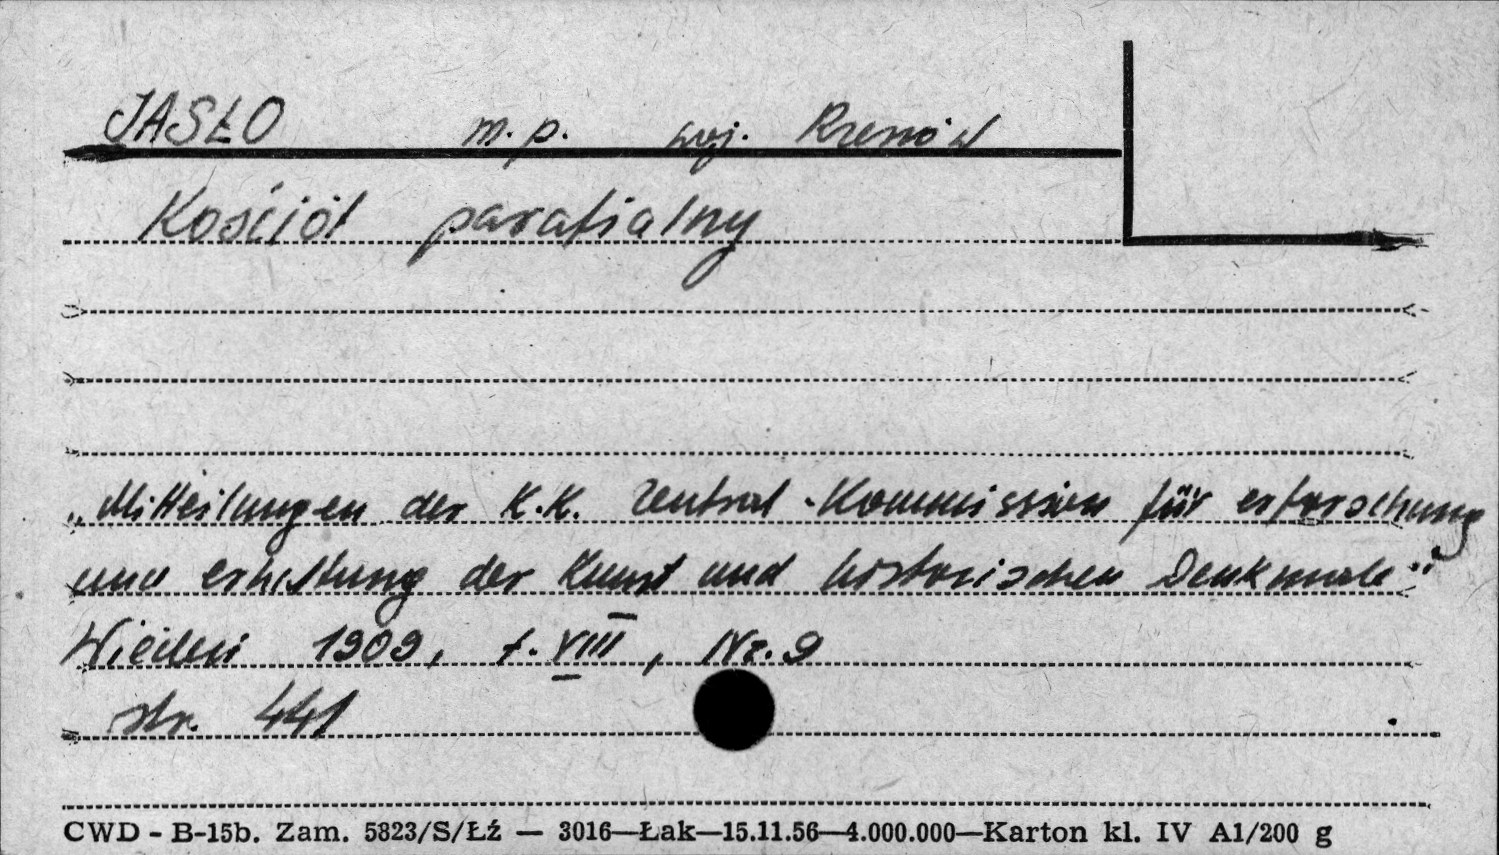 JASŁO m.p. woj. Rzeszów
Kościół parafialny
„Mitteilungen der K.K. Zentral-Kommission für erforschung
und erhaltung der Kunst und historischen Denkmale"
Wiedeń 1909, t. VIII, Nr. 9
str. 441
CWD - B-15b. Zam. 5823/S/Łź — 3016—Łak—15.11.56—4.000.000—Karton kl. IV A1/200 g